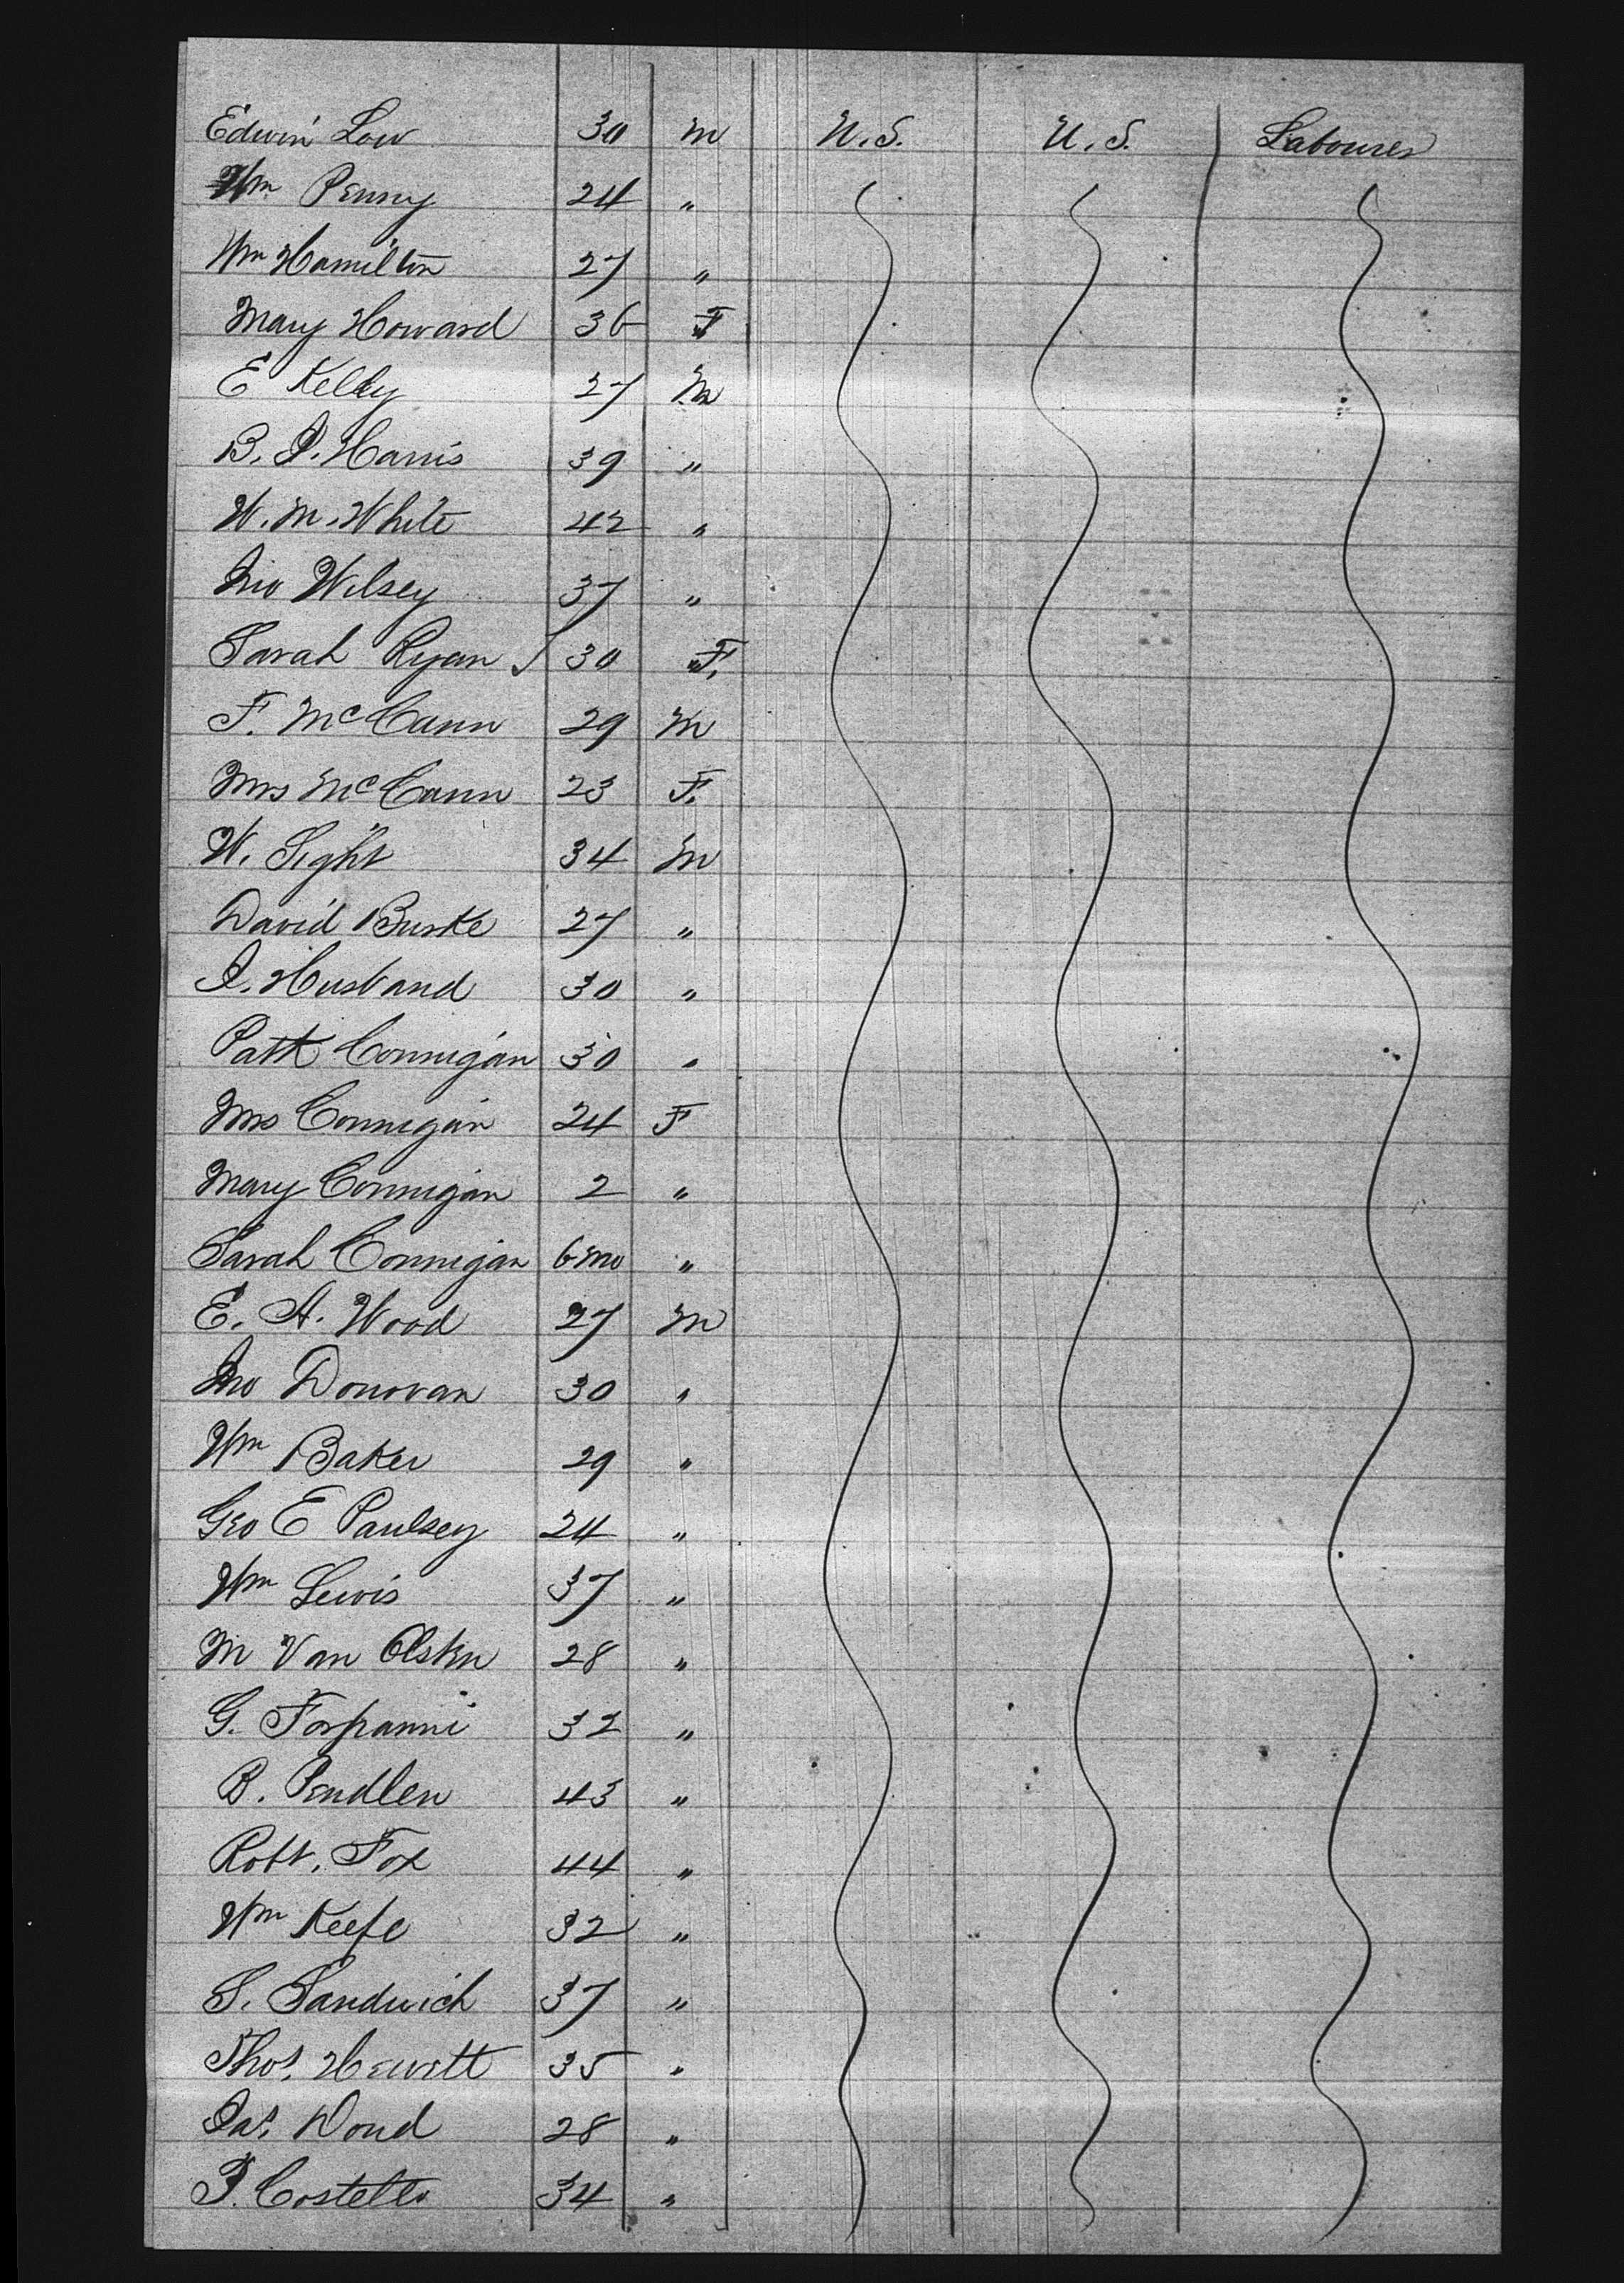 Edwin Low 30 m U.S. U.S. Labourer
Wm Penny 24 "
Wm Hamilton 27 "
Mary Howard 36 F
E Kelly 27 m
B. J. Harris 39 "
W. M. White 42 "
Jno Wilsey 37 "
Sarah Ryan 30 F.
F. McCann 29 m
Mrs McCann 23 F.
W. Sight 34 m
David Burke 27 "
J. Husband 30 "
Patk Connigan 30 "
Mrs Connigan 24 F
Mary Connigan 2 "
Sarah Connigan 6 mo "
E. A. Wood 27 m
Jno Donovan 30 "
Wm Baker 29 "
Geo E Paulsey 24 "
Wm Lewis 37 "
M Van 28 "
G. 32 "
B. Pendlen 43 "
Robt. Fox 44 "
Wm Keefe 32 "
S. Sandwich 37 "
Thos. Hewitt 35 "
Jas. Doud 28 "
T. Costello 34 "